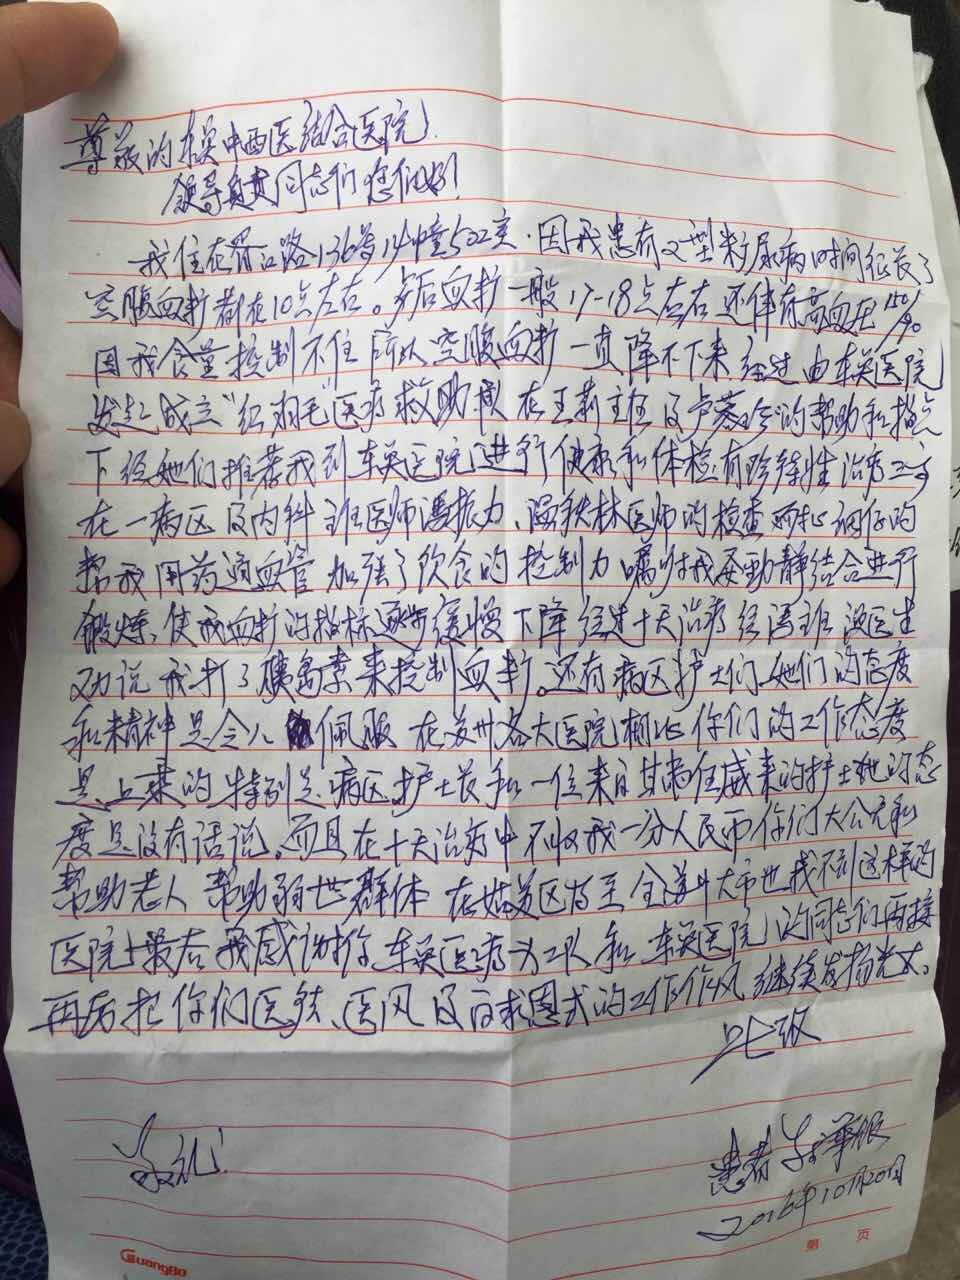 尊敬的东吴中西医结合医院
领导负责同志们您们好!
我住在胥江路136号14幢502室.因我患有2型料尿病时间征长了
空腹血扩都在10点左右。歺后血扩一般17-18点左右还伴有高血压150/90
因我食量控制不住所以空腹血扩一直降不下来经过由东吴医院
发起成立“红羽毛”医疗救助 在王莉主任及卢 的帮助和指点
下经她们推荐我到东吴医院进行健康和体检有珍特性治疗
在一病区及内科主任医师冯振力、强秋林医师的检查耐心细仔的
帮我用药通血管加强了饮食的控制力嘱咐我要動静结合进行
锻炼、使我血扩的指标逐步缓慢下降经过十天治疗经冯主任 医生
劝说我打了胰島素来控制血扩。还有病区护士们她们的态度
和精神是令人佩服在苏州各大医院相比你们的工作态度
是上乘的特别是病区护士长和一位来自甘肃任威来的护士她的态
度是没有话说。而且在十天治疗中不收我一分人民币你们大公无私
帮助老人帮助弱世群体在姑苏区乃至全苏州大市也找不到这样的
医院!最后我感谢你东吴医疗 队和东吴医院 的同志们再接
再厉把你们医德、医风及白求恩式的工作作风继续发扬光大。
此致
敬礼!
患者 华
2016年10月20日
第 页
GuangBo